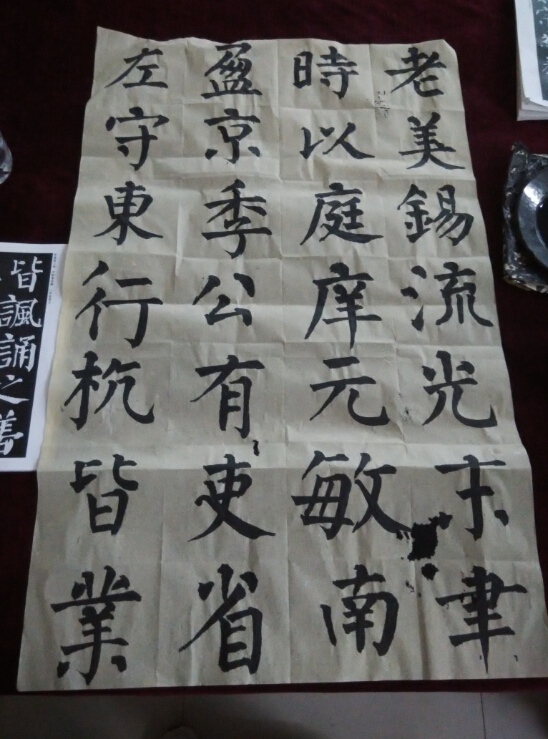 老美錫流光末聿
時以庭庠元敏南
盈京季公有吏省
左守東行杭皆業
皆諷誦之善